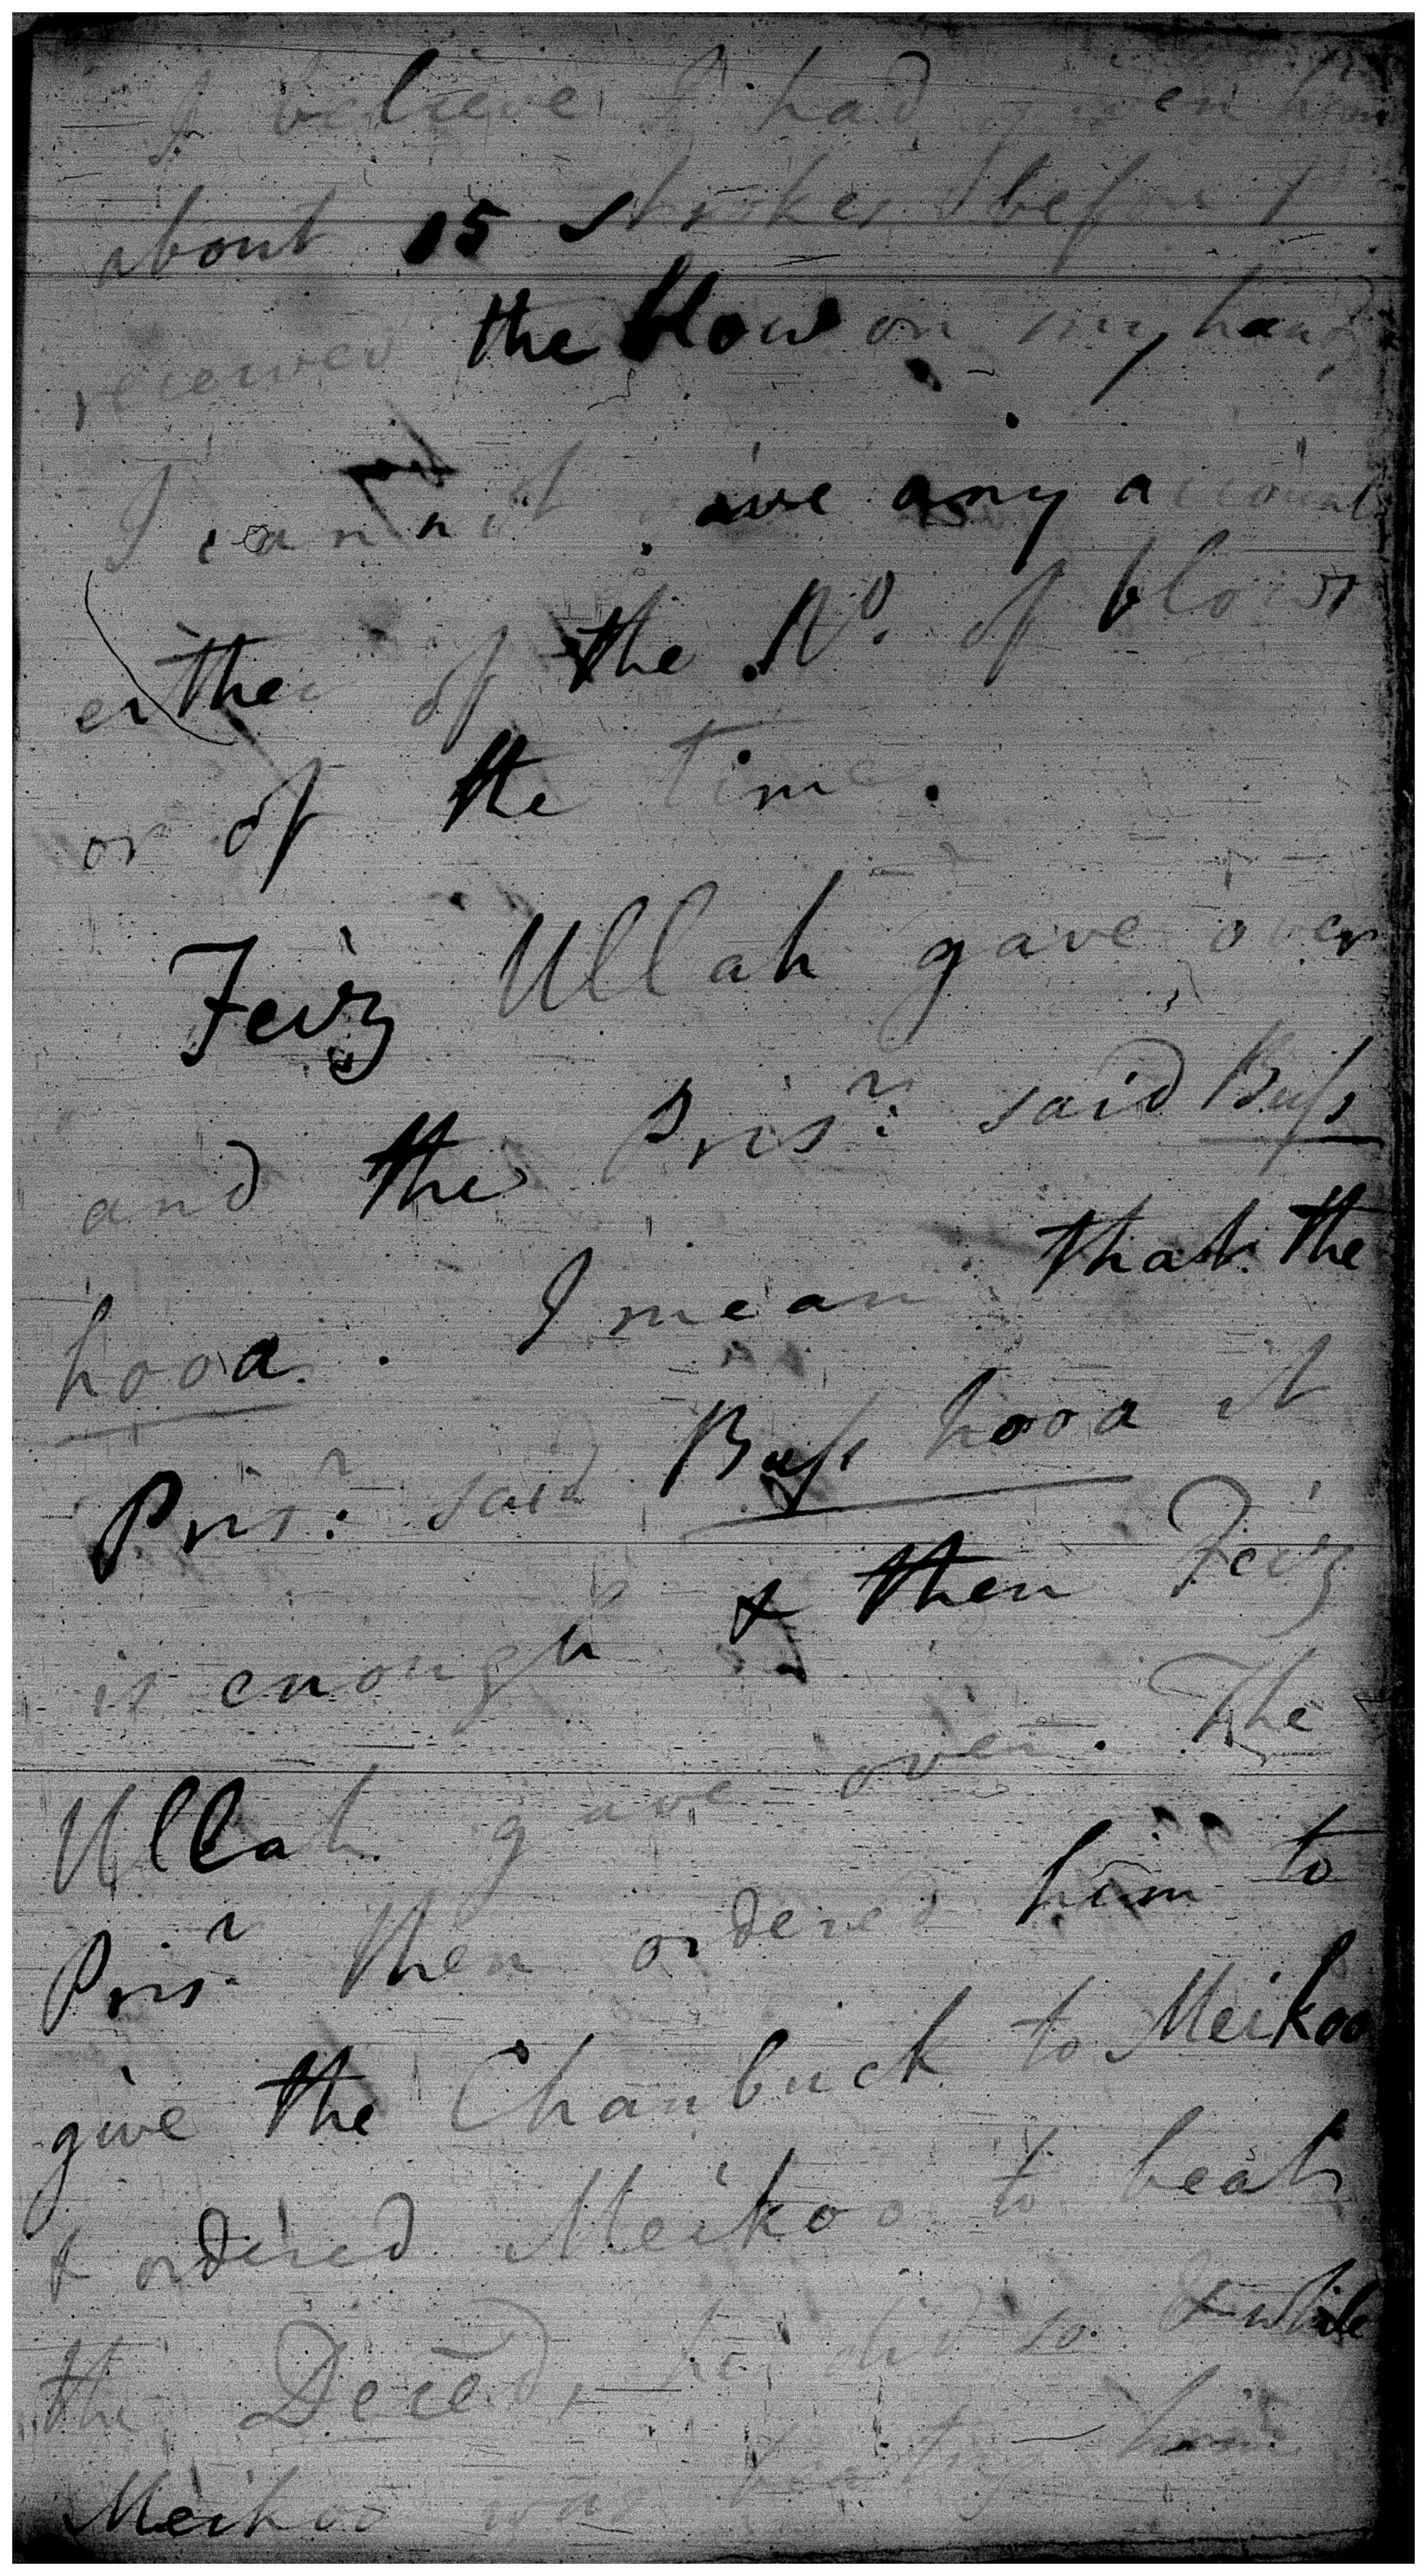 I believe I had given him
about 15 strokes before I
received the blow on my hand
I cannot give any account
either of the No. of blows
or of the time.
Feiz Ullah gave over
and the Prisr: said Buss
hooa. I mean that the
Prisr: said Buss hooa it
is enough & then Feiz
Ullah gave over. The
Prisr then ordered him to
give the Chaubuck to Meikoo
& ordered Meikoo to beat
the Deced, he did so & while
Meikoo was beating him